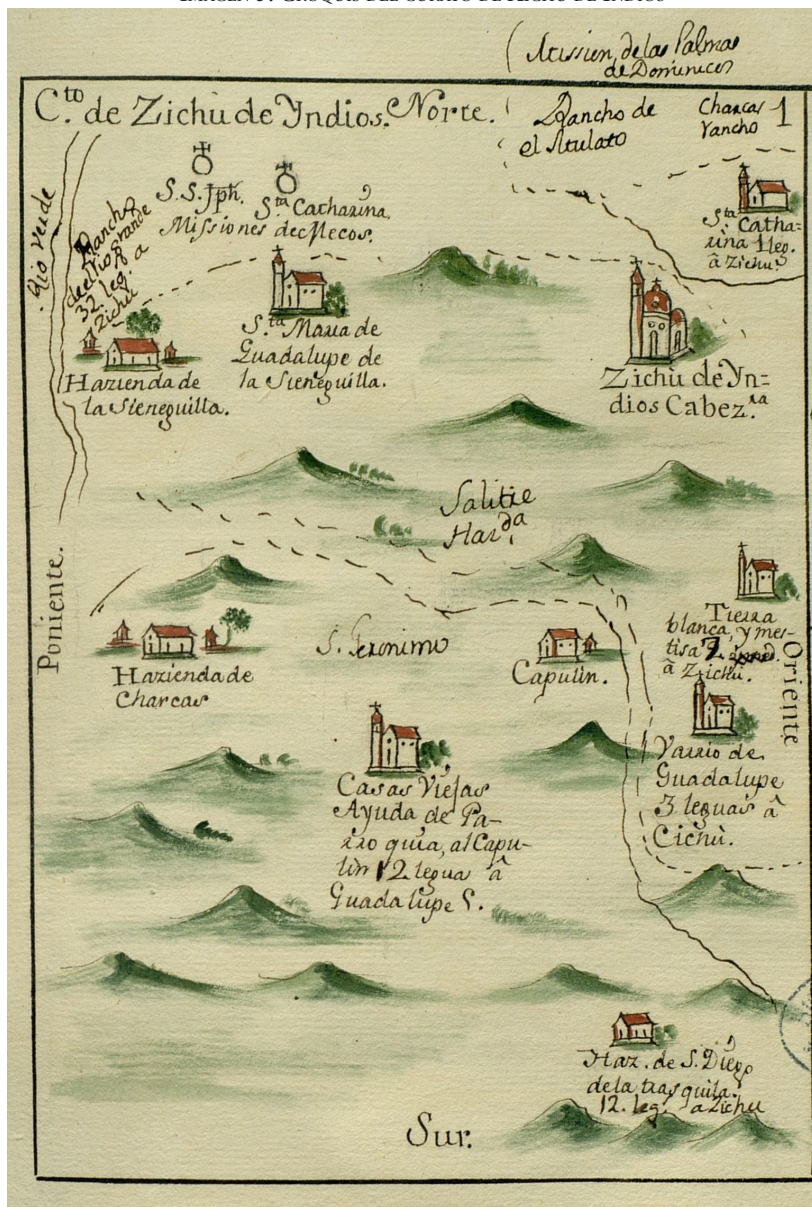 IMAGEN 5. CROQUIS DEL CURATO DE XICHÚ DE INDIOS
Mission, de las Palmas
de Dominicos
C.to de Zichù de Yndios.
Norte.
Rancho de
el Mulato
Charcas
rancho
1
Rio Verde
Rancho
del Rio grande
32. leg. a
Zichu
S. S. Jph.
S.ta Catharina.
Missiones de Mecos.
S.ta Catha-
rina 1 leg.
â Zichu.
S.ta Maria de
Guadalupe de
la Sieneguilla.
Hazienda de
la Sieneguilla.
Zichù de Yn=
dios Cabez.ra
Salitre
Haz.da
Poniente.
Oriente
Tierra
blanca, y mes-
tisa 7
â Zichu.
Hazienda de
Charcas
S. Geronimo
Capulin.
Varrio de
Guadalupe
3 leguas â
Cichù.
Casas Viejas
Ayuda de Pa-
rroquia, al Capu-
lin 12 legua â
Guadalupe 5.
Haz. de S. Diego
de la trasquila.
12. leg. a Zichu
Sur.